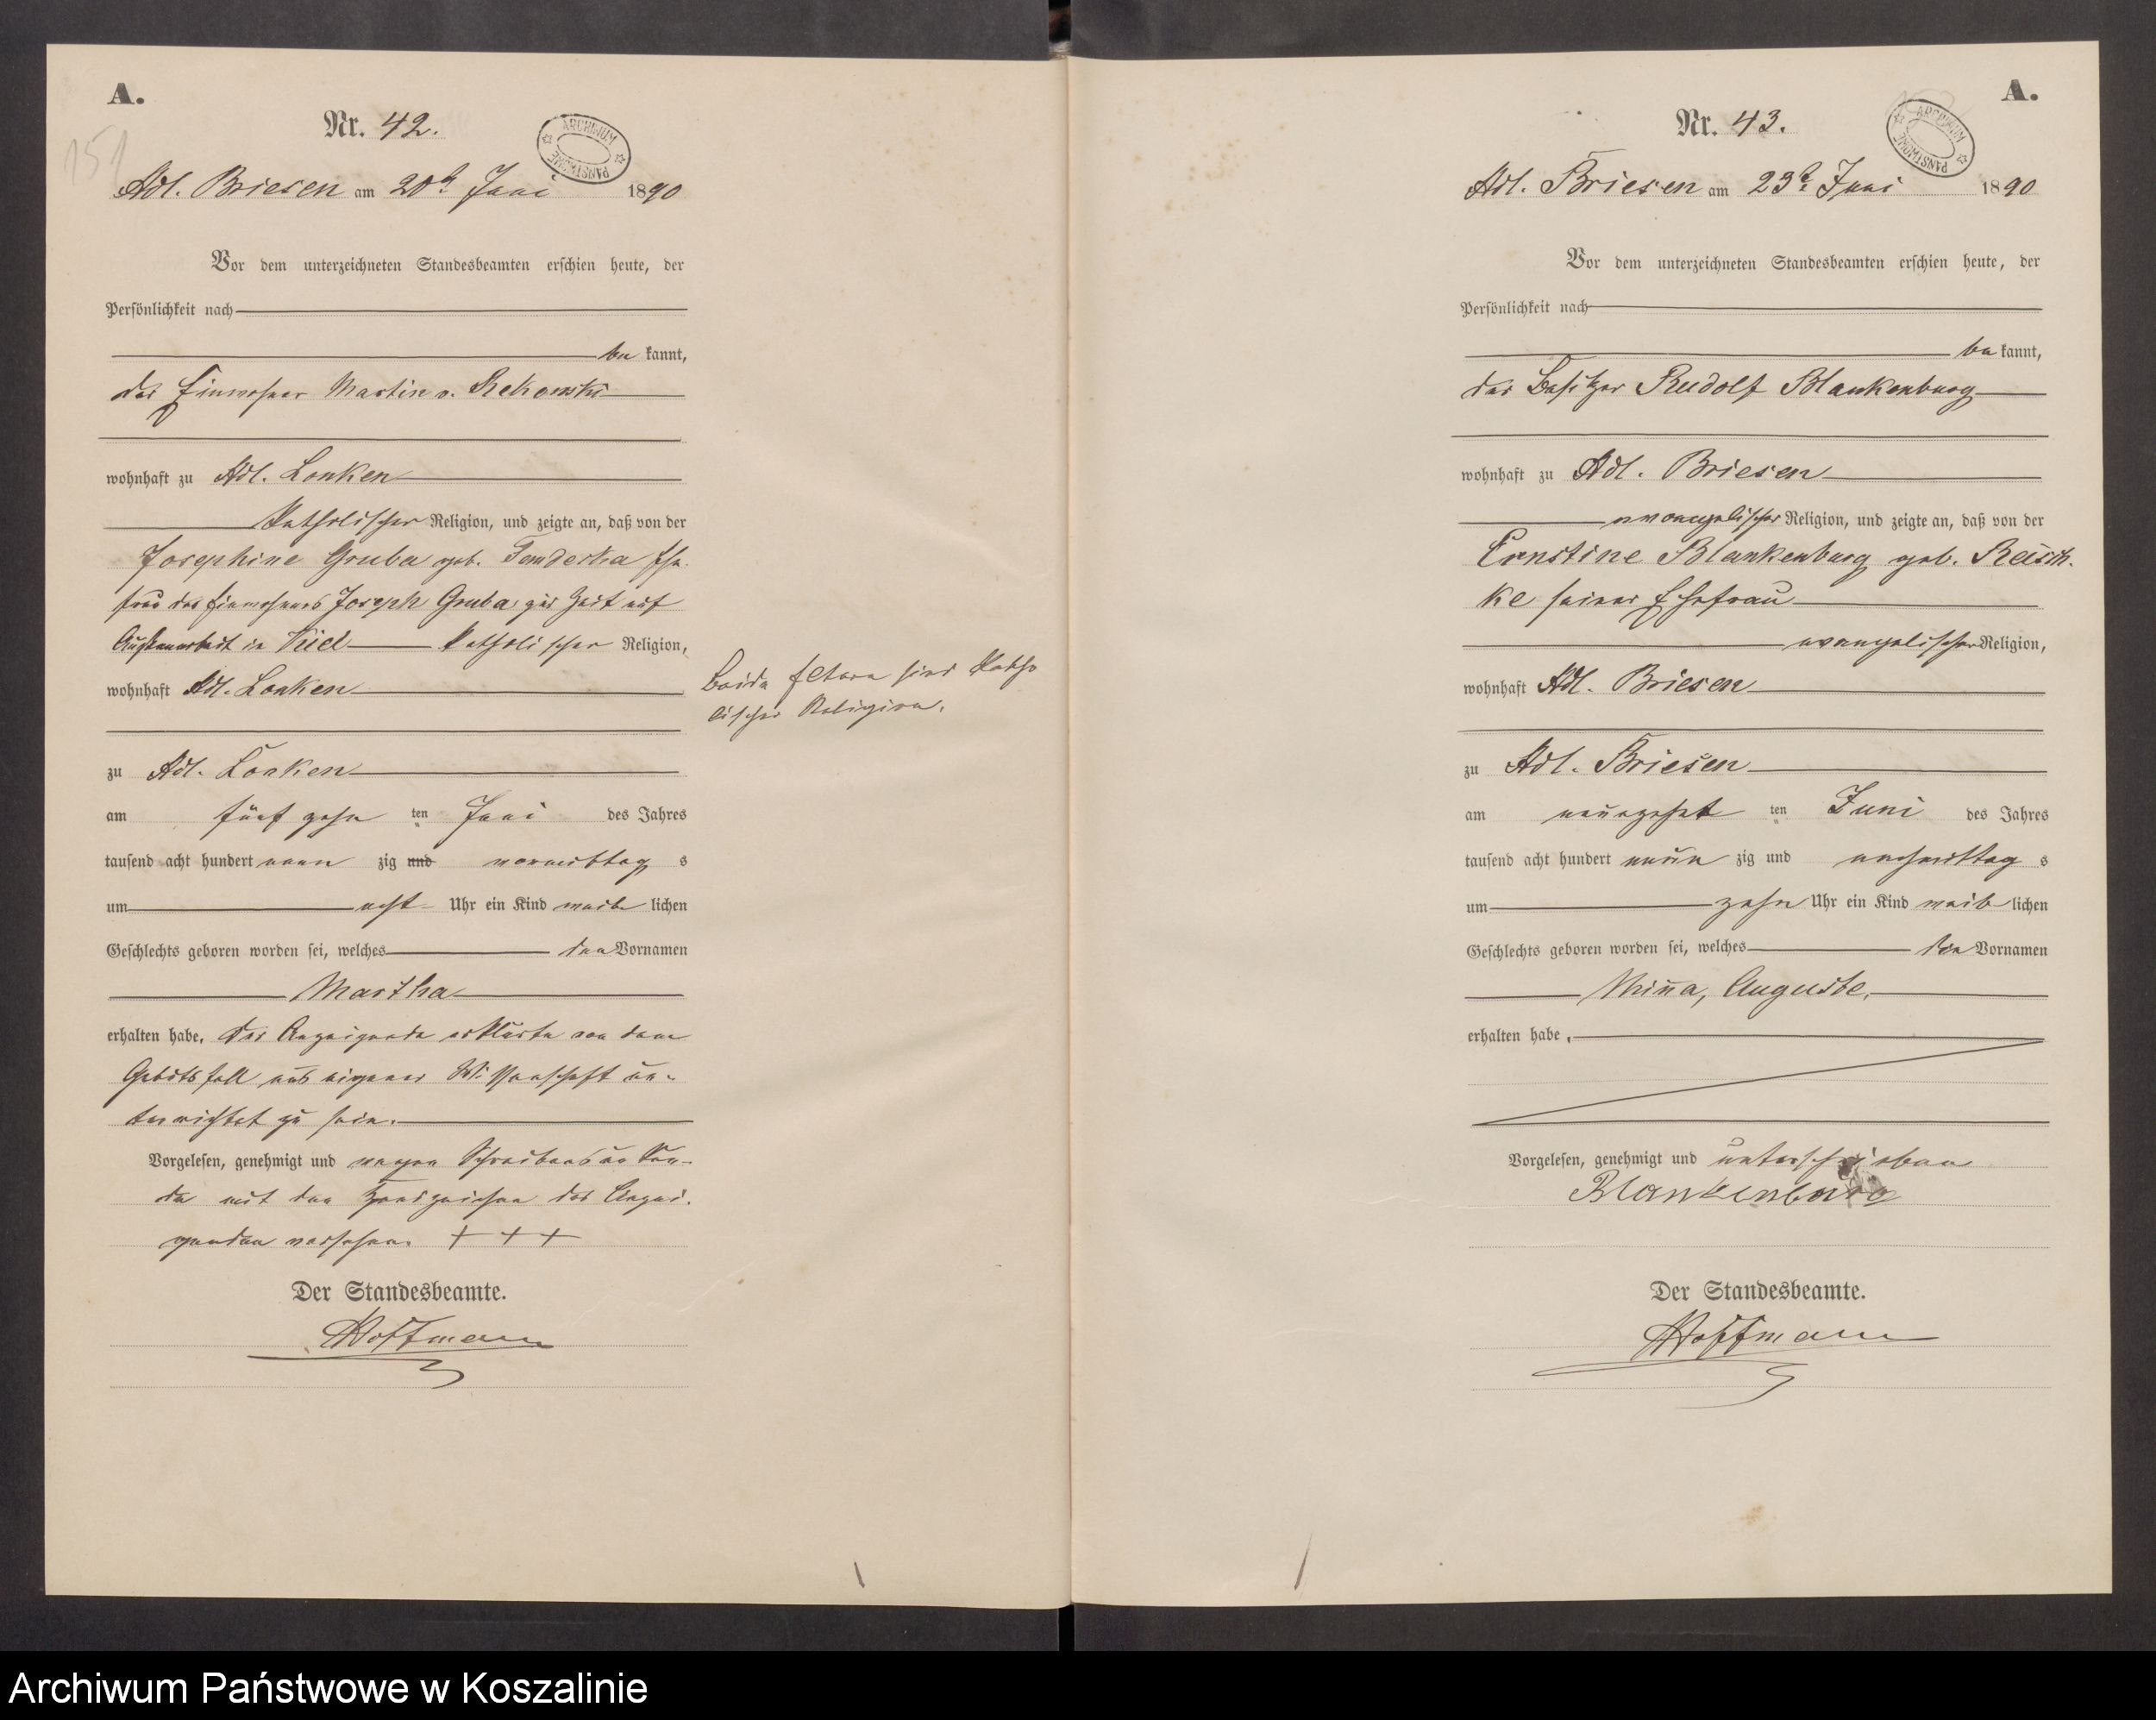 A.
Nr. 42.
151
ARCHIWUM PAŃSTWOWE
Adl. Briesen am 20t Juni 1890
Vor dem unterzeichneten Standesbeamten erschien heute, der
Persönlichkeit nach
be kannt,
der Einwohner Martin v. Rekowski
wohnhaft zu Adl. Lonken
katholischer Religion, und zeigte an, daß von der
Josephine Gruba geb. Ehe-
frau des Einwohners Joseph Gruba zur Zeit auf
Außenarbeit in Kiel katholischer Religion,
wohnhaft Adl. Lonken
zu Adl. Lonken
am fünfzehn ten Juni des Jahres
tausend acht hundert neun zig und vormittag s
um acht Uhr ein Kind weib lichen
Geschlechts geboren worden sei, welches den Vornamen
Martha
erhalten habe. Der Anzeigende erklärte von dem
Gebutsfall aus eigener Wissenschaft un-
terrichtet zu sein.
Vorgelesen, genehmigt und wegen Schreibensunkun-
de mit den Handzeichen des Anzei-
genden versehen. + + +
Der Standesbeamte.
Hoffmann
Beide Eltern sind katho
lischer Religion.
A.
Nr. 43.
ARCHIWUM PAŃSTWOWE
Adl. Briesen am 23t Juni 1890
Vor dem unterzeichneten Standesbeamten erschien heute, der
Persönlichkeit nach
be kannt,
der Besitzer Rudolf Blankenburg
wohnhaft zu Adl. Briesen
evangelischer Religion, und zeigte an, daß von der
Ernstine Blankenburg geb. Reisch-
ke seiner Ehefrau
evangelischer Religion,
wohnhaft Adl. Briesen
zu Adl. Briesen
am neunzehnt ten Juni des Jahres
tausend acht hundert neun zig und nachmittag s
um zehn Uhr ein Kind weib lichen
Geschlechts geboren worden sei, welches die Vornamen
Minna, Auguste,
erhalten habe.
Vorgelesen, genehmigt und unterschrieben
Blankenburg
Der Standesbeamte.
Hoffmann
Archiwum Państwowe w Koszalinie